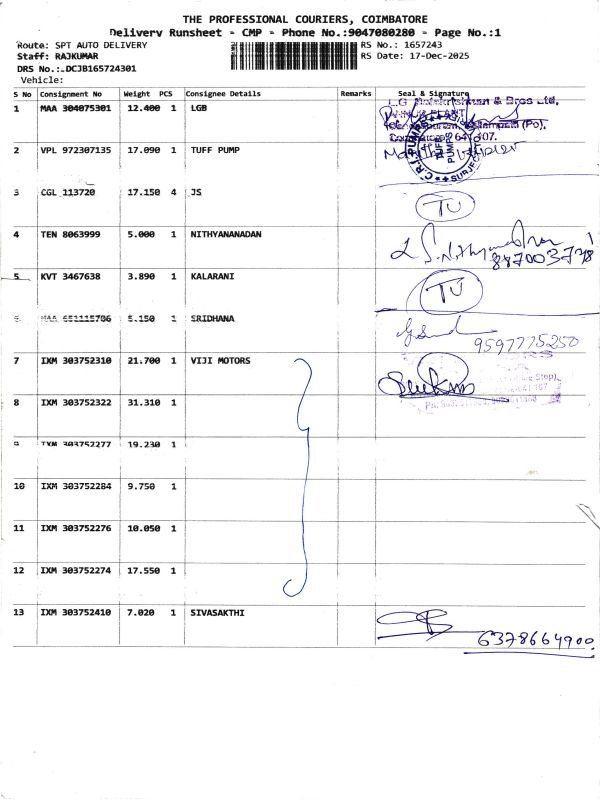 THE PROFESSIONAL COURIERS, COIMBATORE
Delivery Runsheet - CMP - Phone No.:9047080280 - Page No.:1
Route: SPT AUTO DELIVERY RS No.: 1657243
Staff: RAJKUMAR RS Date: 17-Dec-2025
DRS No.: DCJB165724301
Vehicle:
S No Consignment No Weight PCS Consignee Details Remarks Seal & Signature
1 MAA 304075301 12.400 1 LGB
& Bros Ltd,
2 VPL 972307135 17.090 1 TUFF PUMP
3 CGL 113720 17.150 4 JS
TU
4 TEN 8063999 5.000 1 NITHYANANADAN
5 KVT 3467638 3.890 1 KALARANI
TU
6 MAA 651115706 5.150 1 SRIDHANA
9597775250
7 IXM 303752310 21.700 1 VIJI MOTORS
8 IXM 303752322 31.310 1
9 IXM 303752277 19.230 1
10 IXM 303752284 9.750 1
11 IXM 303752276 10.050 1
12 IXM 303752274 17.550 1
13 IXM 303752410 7.020 1 SIVASAKTHI
6378664900